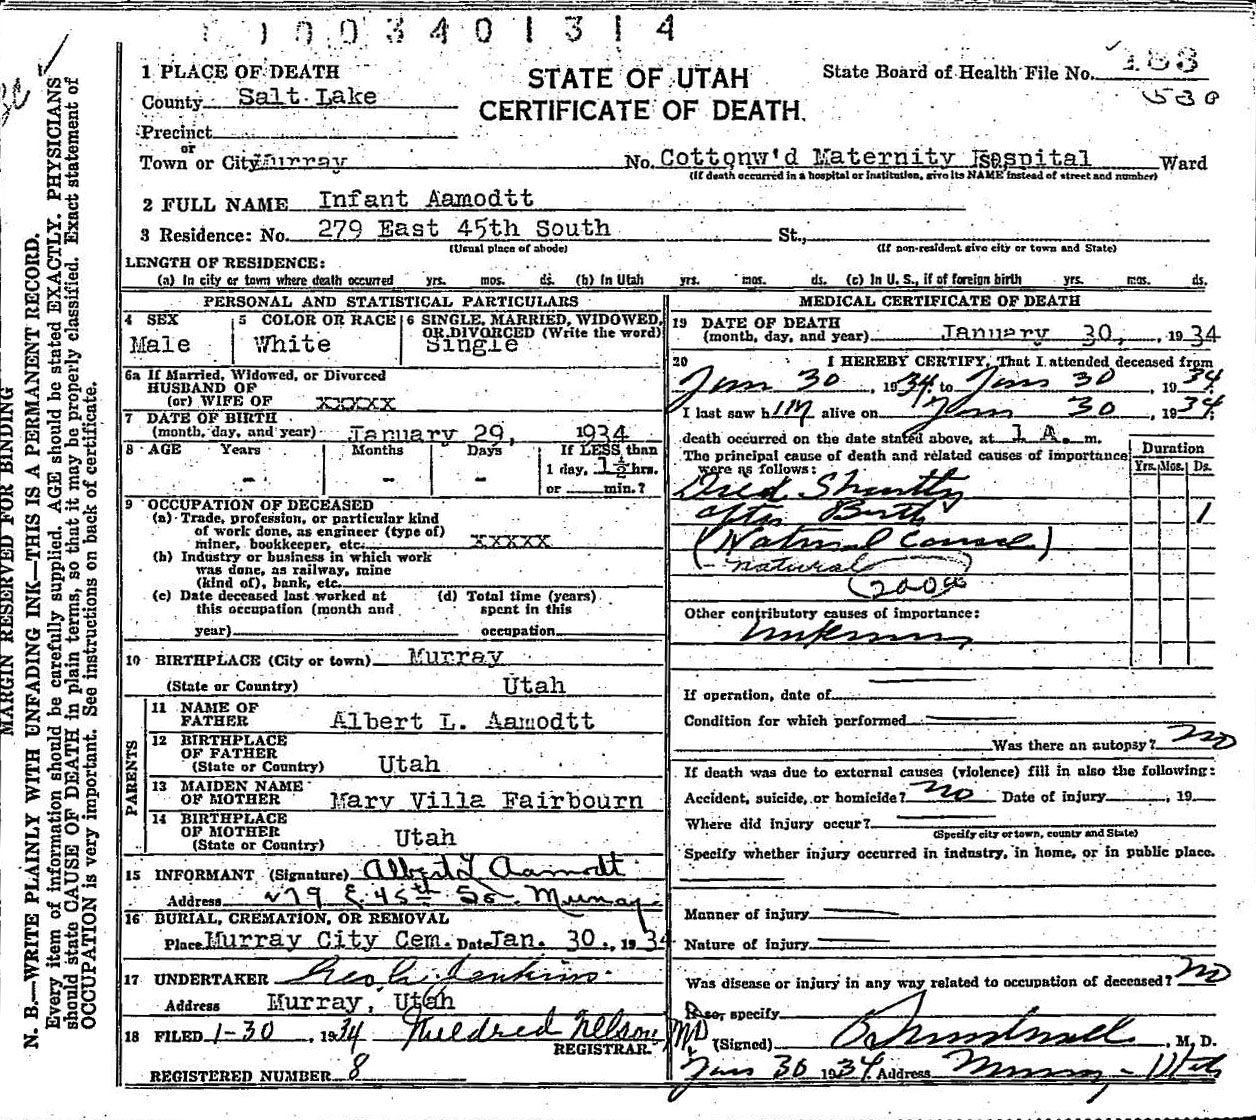 1003401314
1 PLACE OF DEATH
STATE OF UTAH
CERTIFICATE OF DEATH.
State Board of Health File No. 183
530
County Salt Lake
Precinct
or
Town or City Murray No. Cottonw'd Maternity Hospital Ward
(If death occurred in a hospital or institution, give its NAME instead of street and number)
2 FULL NAME Infant Aamodtt
3 Residence: No. 279 East 45th South St.,
(Usual place of abode) (If non-resident give city or town and State)
LENGTH OF RESIDENCE:
(a) In city or town where death occurred yrs. mos. ds. (b) In Utah yrs. mos. ds. (c) In U. S., if of foreign birth yrs. mos. ds.
PERSONAL AND STATISTICAL PARTICULARS
4 SEX Male
5 COLOR OR RACE White
6 SINGLE, MARRIED, WIDOWED, OR DIVORCED (Write the word) Single
6a If Married, Widowed, or Divorced
HUSBAND OF
(or) WIFE OF XXXXX
7 DATE OF BIRTH
(month, day, and year) January 29, 1934
8 AGE Years Months Days If LESS than
- - - 1 day, 1½ hrs.
or min.?
9 OCCUPATION OF DECEASED
(a) Trade, profession, or particular kind
of work done, as engineer (type of)
miner, bookkeeper, etc. XXXXX
(b) Industry or business in which work
was done, as railway, mine
(kind of), bank, etc.
(c) Date deceased last worked at (d) Total time (years)
this occupation (month and spent in this
year) occupation
10 BIRTHPLACE (City or town) Murray
(State or Country) Utah
PARENTS
11 NAME OF
FATHER Albert L. Aamodtt
12 BIRTHPLACE
OF FATHER
(State or Country) Utah
13 MAIDEN NAME
OF MOTHER Mary Villa Fairbourn
14 BIRTHPLACE
OF MOTHER
(State or Country) Utah
15 INFORMANT (Signature) Albert L Aamodt
Address 279 E. 45th So. Murray
16 BURIAL, CREMATION, OR REMOVAL
Place Murray City Cem. Date Jan. 30., 1934
17 UNDERTAKER Geo. A. Jenkins
Address Murray, Utah
18 FILED 1-30, 1934 Mildred Nelson
REGISTRAR.
REGISTERED NUMBER 8
MEDICAL CERTIFICATE OF DEATH
19 DATE OF DEATH
(month, day, and year) January 30, , 1934
20 I HEREBY CERTIFY, That I attended deceased from
Jan 30, 1934 to Jan 30 1934
I last saw him alive on Jan 30, 1934
death occurred on the date stated above, at 1 A. m.
The principal cause of death and related causes of importance
were as follows:
Duration
Yrs. Mos. Ds.
Died Shortly
after Birth 1
(Natural Causes)
(- natural
(200a
Other contributory causes of importance:
Unknown
If operation, date of
Condition for which performed
Was there an autopsy? No
If death was due to external causes (violence) fill in also the following:
Accident, suicide, or homicide? No Date of injury , 19
Where did injury occur?
(Specify city or town, county and State)
Specify whether injury occurred in industry, in home, or in public place.
Manner of injury
Nature of injury
Was disease or injury in any way related to occupation of deceased? No
If so, specify
(Signed) , M. D.
Jan 30 1934 Address Murray - Utah
MARGIN RESERVED FOR BINDING
N. B.—WRITE PLAINLY WITH UNFADING INK—THIS IS A PERMANENT RECORD.
Every item of information should be carefully supplied. AGE should be stated EXACTLY. PHYSICIANS
should state CAUSE OF DEATH in plain terms, so that it may be properly classified. Exact statement of
OCCUPATION is very important. See instructions on back of certificate.